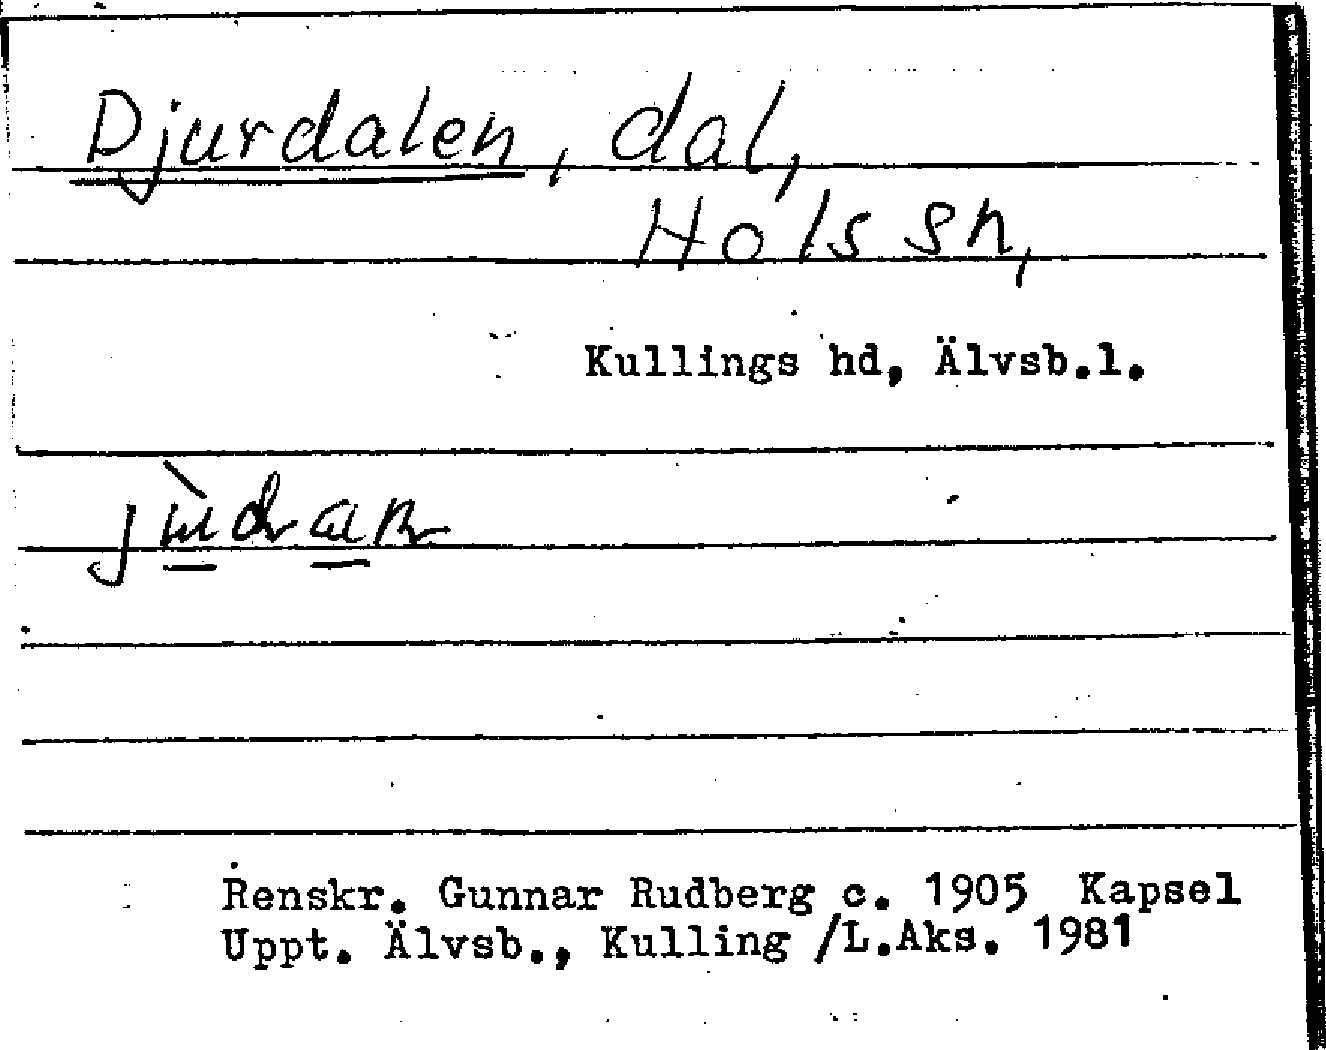 Djurdalen, dal,
Hols sn,
Kullings hd, Älvsb.l.
Renskr. Gunnar Rudberg c. 1905 Kapsel
Uppt. Älvsb., Kulling /L.Aks. 1981